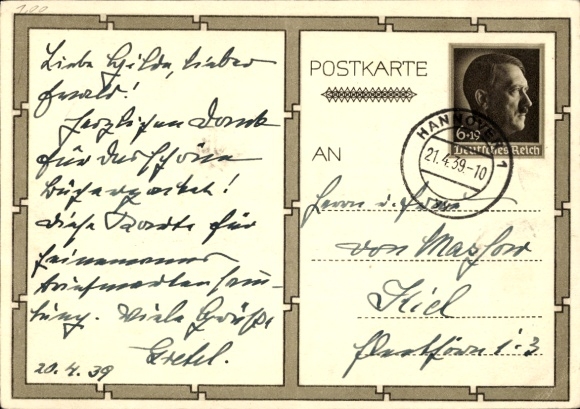 Liebe Hilde, lieber
Ewald!
Herzlichen Dank
für das schöne
Bücherpaket!
Diese Karte für
Briefmarkensamm-
lung. Viele Grüße,
Gretel.
20.4.39
POSTKARTE
AN
6+19
Deutsches Reich
HANNOVER 1
21.4.39.-10
Herrn u. Frau
von
Kiel
1-3